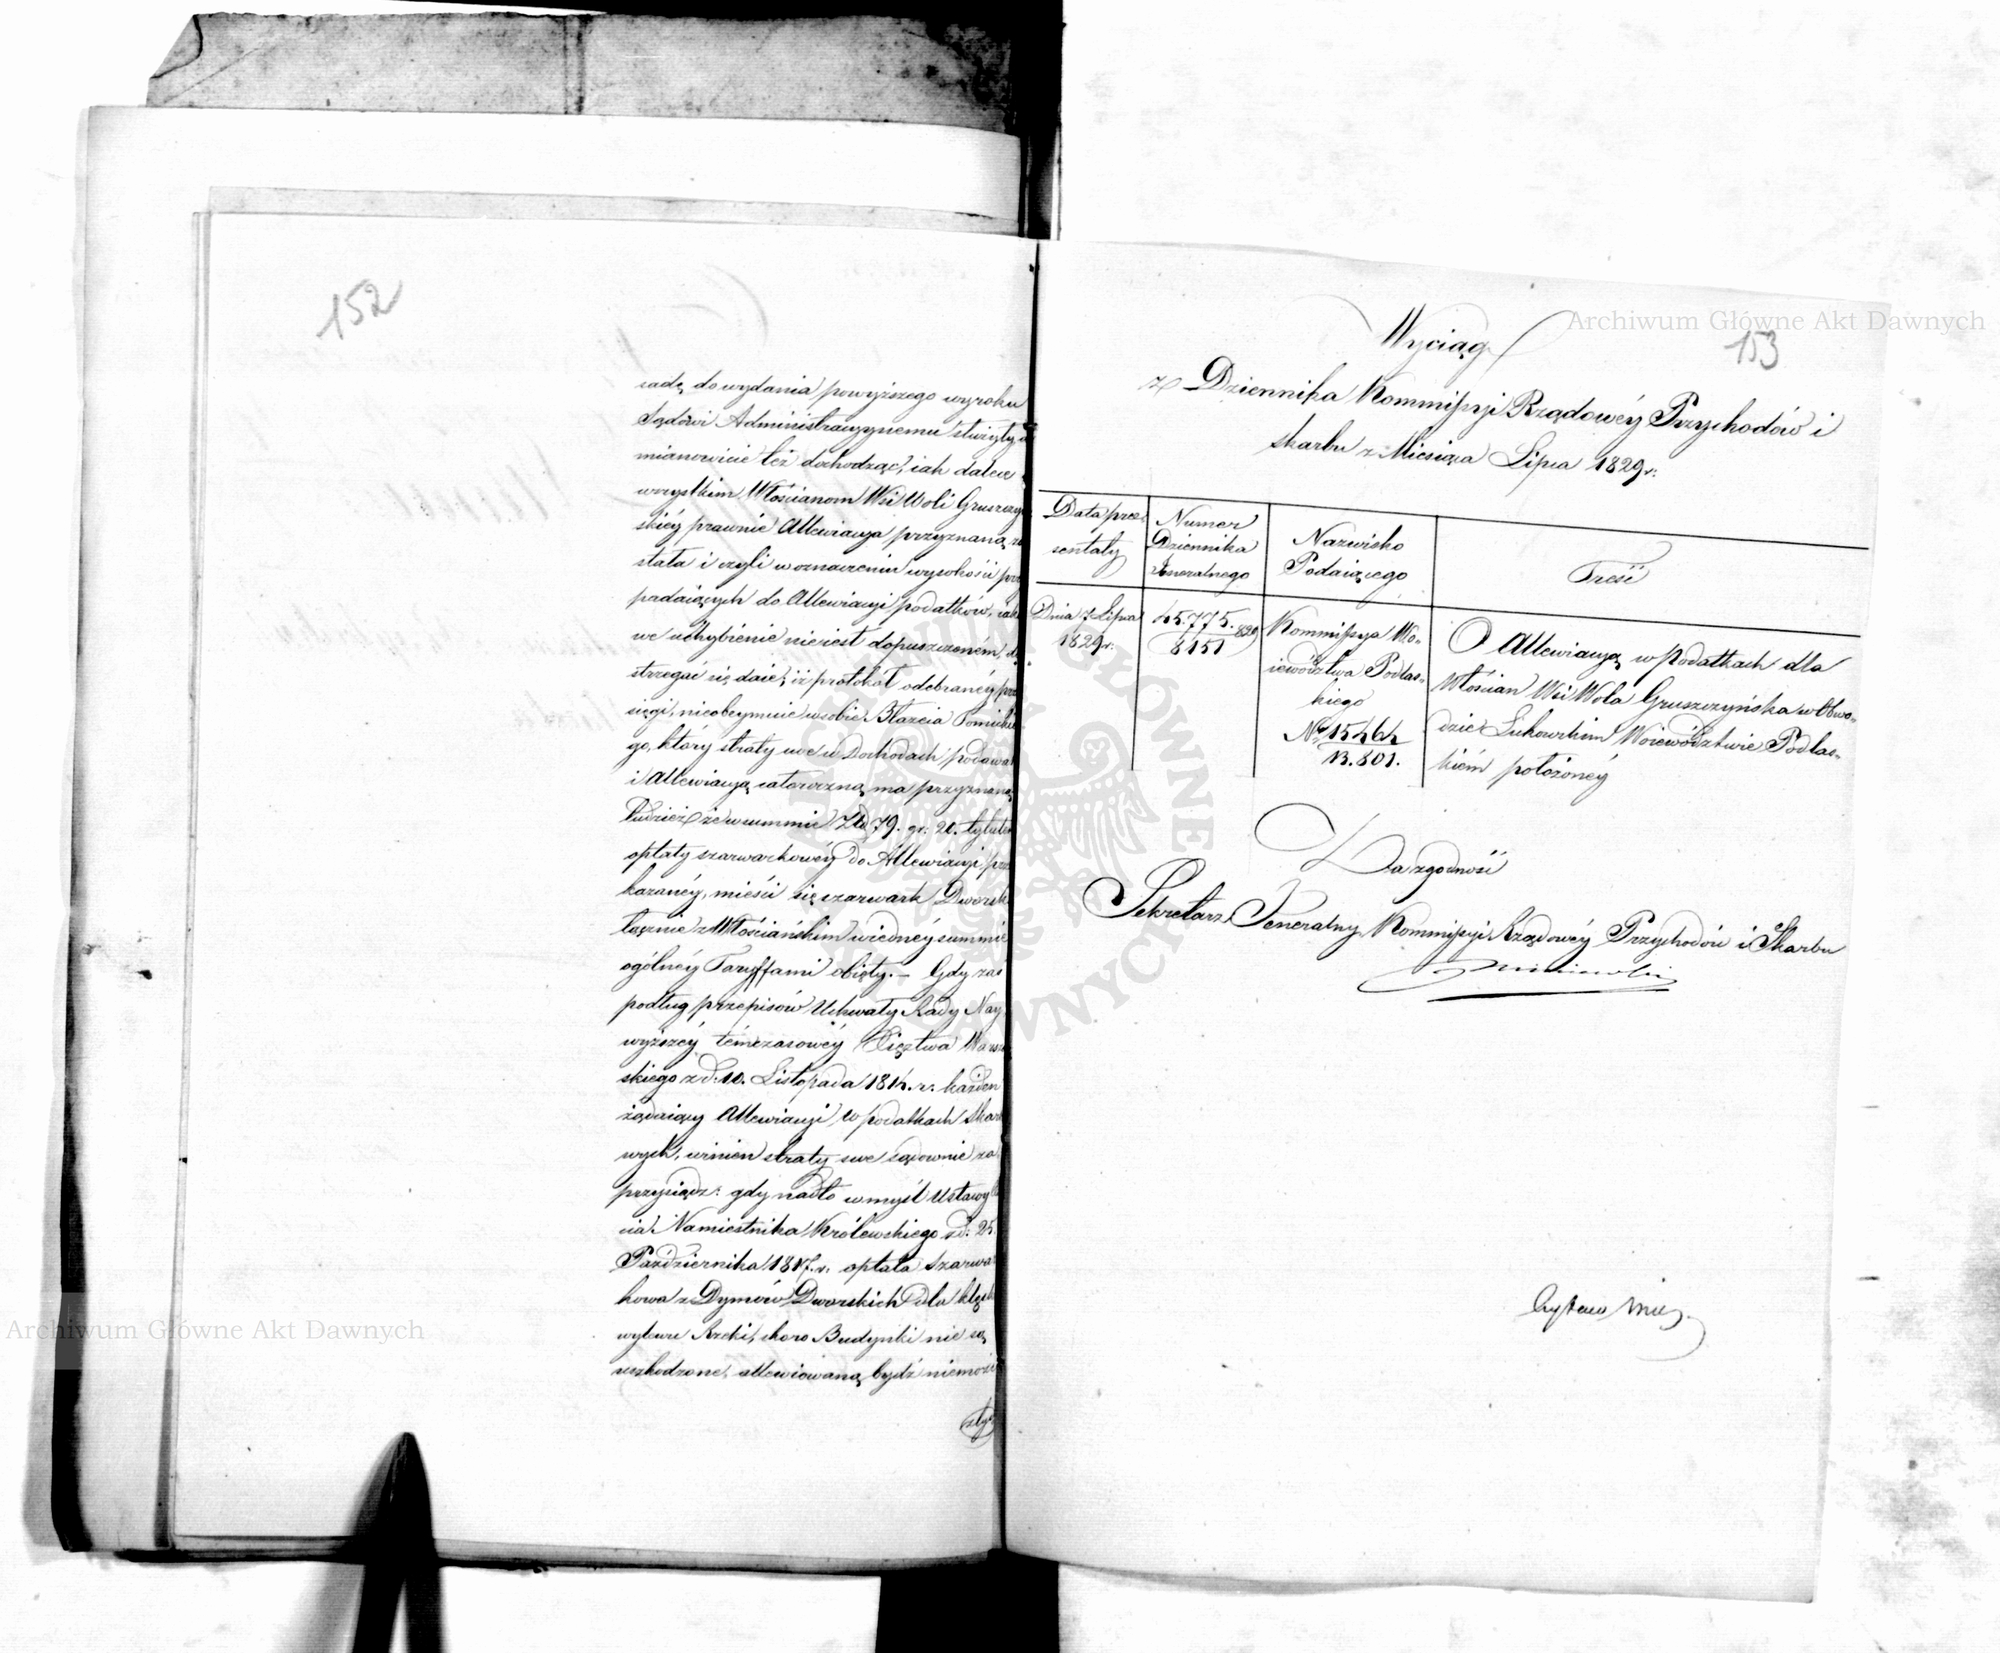 152
sadę do wydania powyższego wyroku
Sądowi Administracyynemu służyły
mianowicie też dochodząc, iak dalece
wszystkim Włościanom Wsi Woli Gruszczyń
skiéy prawnie Allewiacya przyznaną zo
stała i czyli w oznaczeniu wysokości przy
padaiących do Allewiacyi podatków, iako
we uchybienie nieiest dopuszczoném, do
strzegać się daie, iż protokół odebranéy przy
sięgi, nieobeymuie w sobie Błażeia
go, który straty swe w Dochodach podawał
i Allewiacyą całoroczną ma przyznaną
Tudzież że w summie Złp 79. gr: 20. tytułem
opłaty szarwarkowéy do Allewiacyi prze
kazanéy, mieści się szarwark Dworski
łącznie z Włościańskim w iednéy summie
ogólnéy Taryffami obięty. – Gdy zaś
podług przepisów Uchwały Rady Nay
wyższéy témczasowéy Xięztwa Warszaw
skiego z d: 10. Listopada 1814. r. każden
żądaiący Allewiacyi w podatkach Skarbo
wych, winien straty swe sądownie za
przysiądz: gdy nadto w myśl Ustawy
cia Namiestnika Królewskiego z d: 25.
Października 1817. r. opłata Szarwar
kowa z Dymów Dworskich dla klęsk
wylewu Rzeki, skoro Budynki nie są
uszkodzone, allewiowaną bydź niemoże
Archiwum Główne Akt Dawnych
153
Wyciąg
z Dziennika Kommissyi Rządowéy Przychodów i
Skarbu z Miesiąca Lipca 1829 r.
Data pre-
sentaty
Numer
Dziennika
Generalnego
Nazwisko
Podaiącego
Treść
Dnia 7 Lipca
1829 r.
45.775. 829
8151
Kommissya Wo-
iewództwa Podlas-
kiego
No 15464
13.801.
O Allewiacyą w podatkach dla
Włościan Wsi Wola Gruszczyńska w Obwo-
dzie Łukowskim Woiewództwie Podlas-
kiém położonéy
Za zgodność
Sekretarz Generalny Kommissyi Rządowéy Przychodów i Skarbu
Archiwum Główne Akt Dawnych
ARCHIWUM GŁÓWNE AKT DAWNYCH